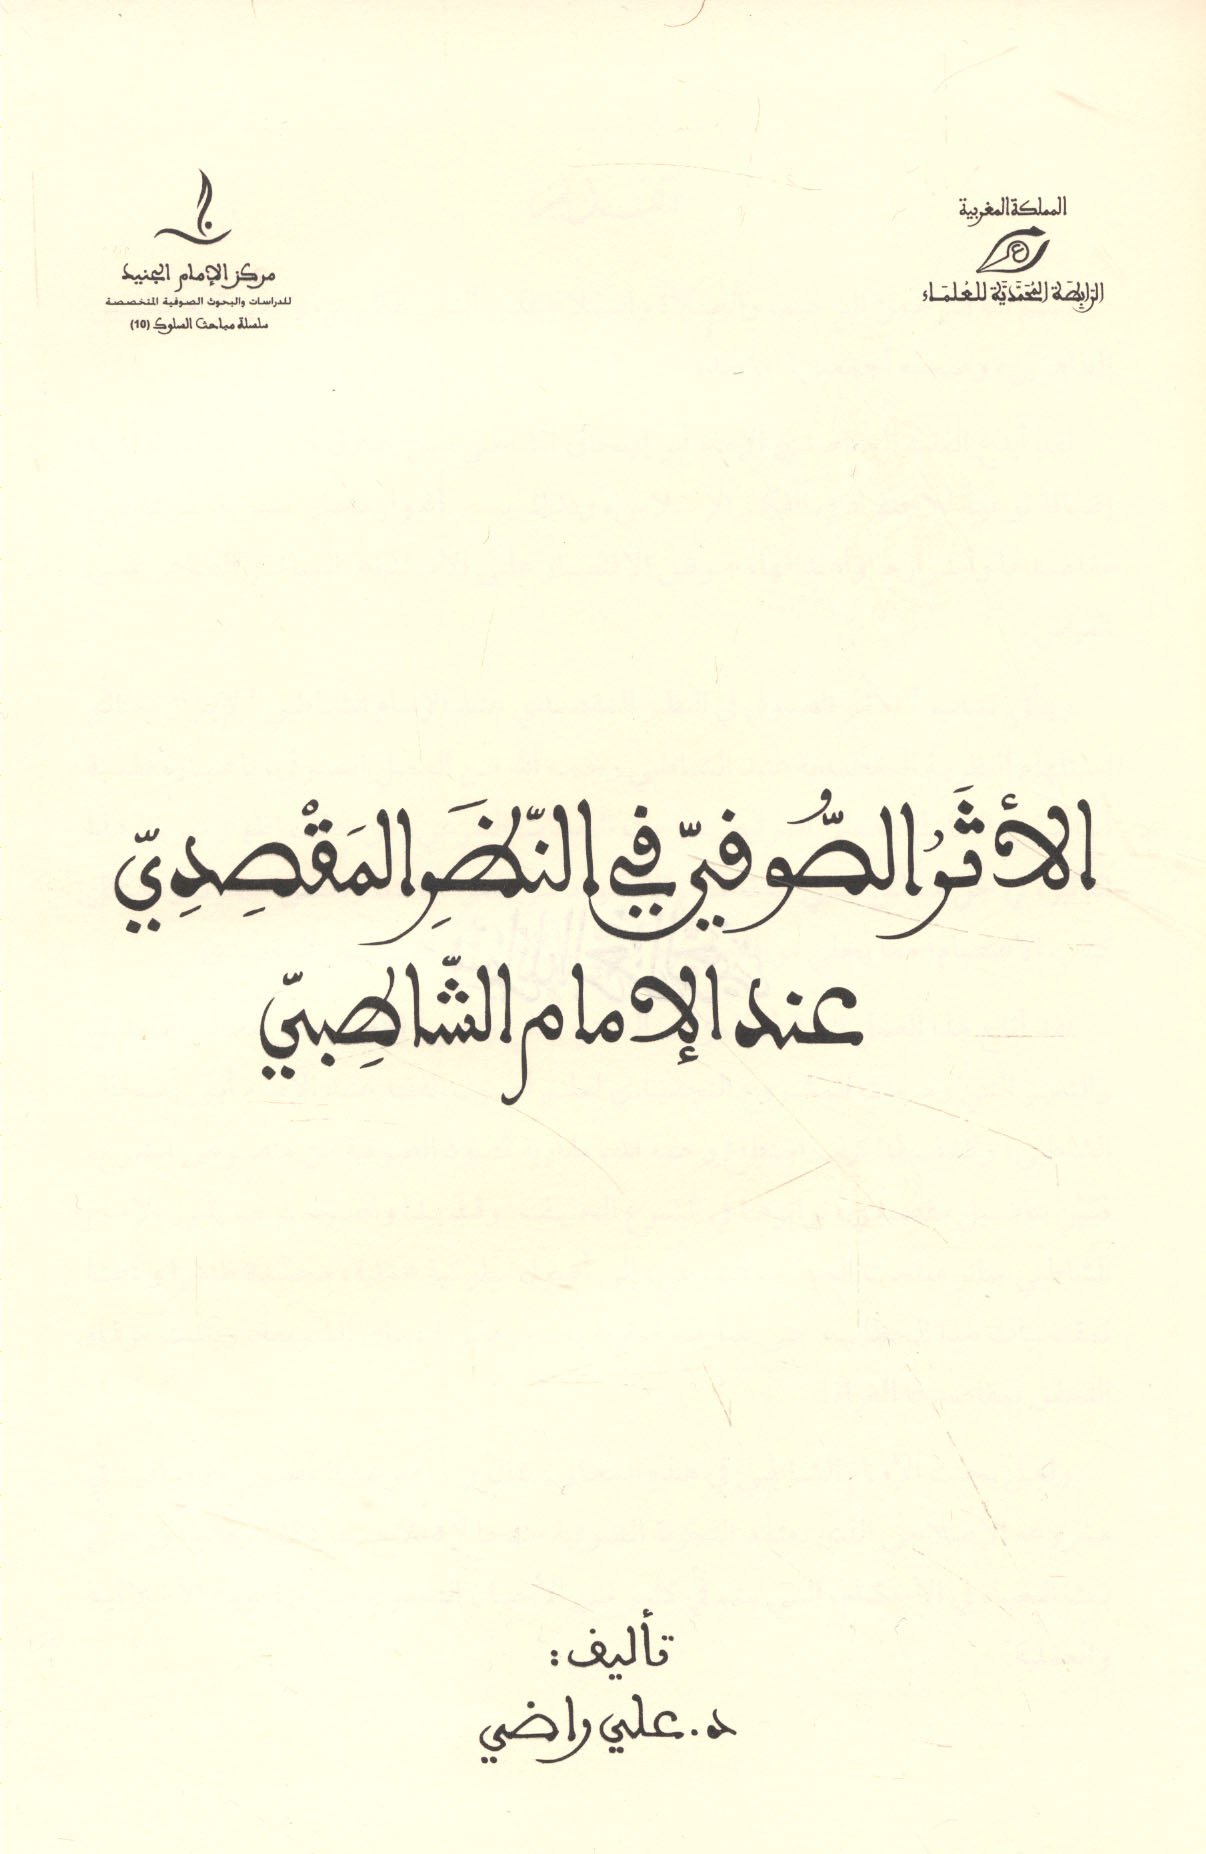 المملكة المغربية
الرابطة المحمدية للعلماء
مركز الإمام الجنيد
للدراسات والبحوث الصوفية المتخصصة
سلسلة مباحث السلوك (10)
الأثَرُ الصُّوفيّ في النّظَرِ المَقْصِدِيّ
عند الإمام الشّاطِبيّ
تأليف:
د. علي راضي